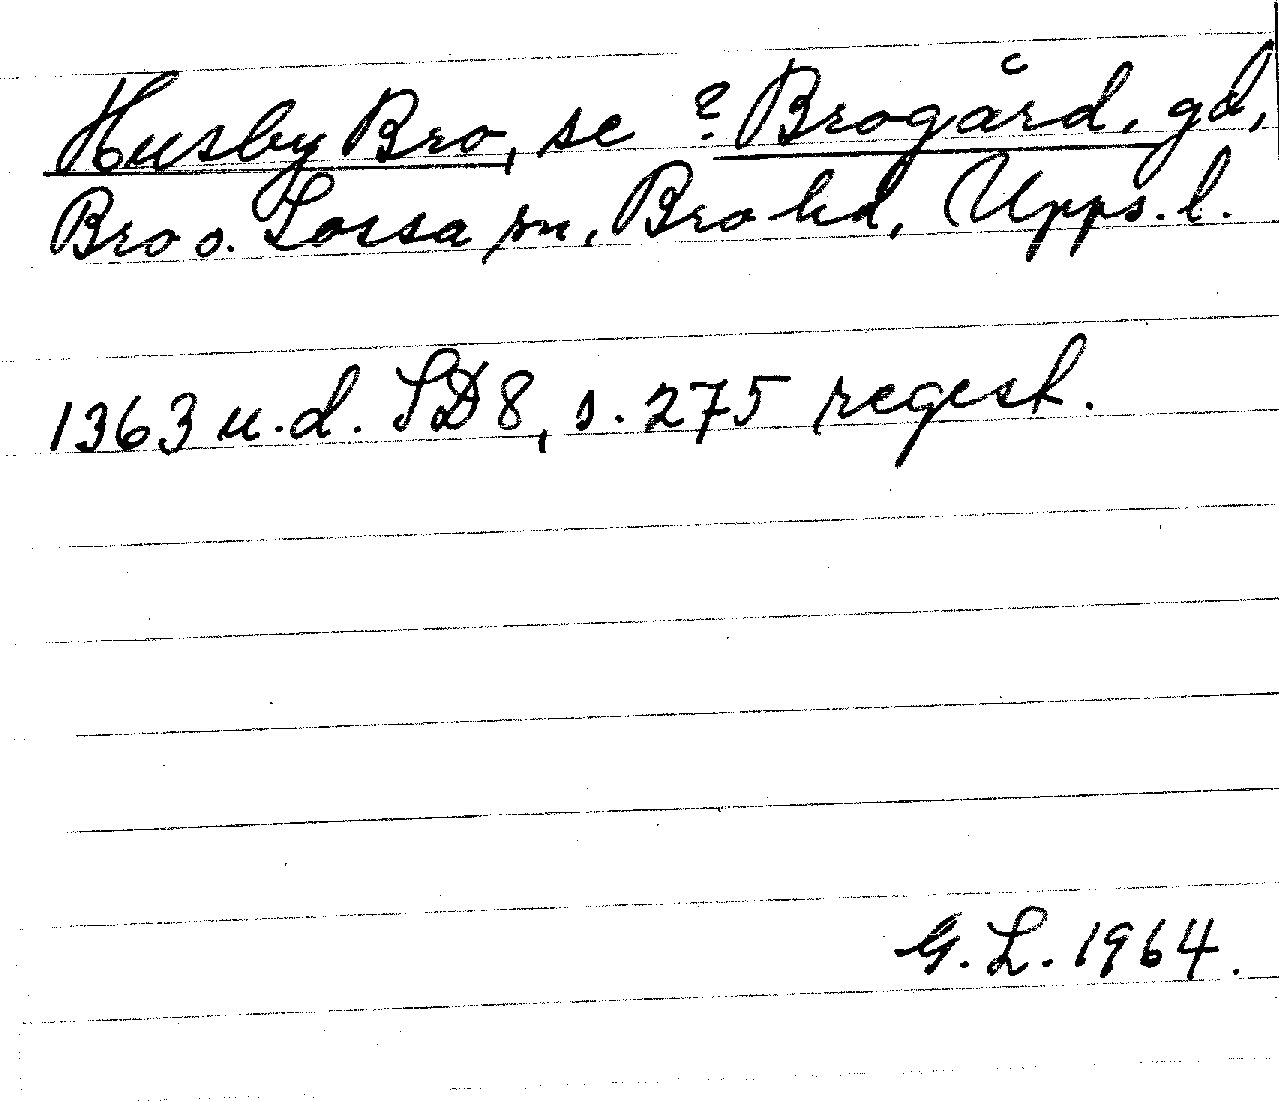 Husby Bro, se ? Brogård, gd,
Bro o. Lossa sn, Bro hd, Upps. l.
1363 u.d. SD 8, s. 275 regest.
G. L. 1964.